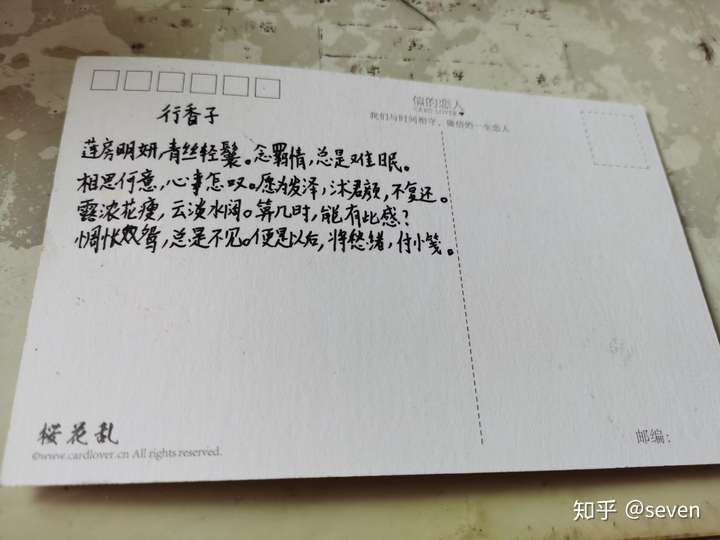 行香子
莲房明妍,青丝轻鬟。念羁情,总是难眠。
相思何意,心事怎叹。愿为发泽,沐君颜,不复还。
露浓花瘦,云淡水阔。算几时,能有此感?
惆怅鸳鸯,总是不见。便是以后,将愁绪,付小笺。
CARD LOVER
我们与时间相守,做信的一生恋人
桜花乱
©www.cardlover.cn All rights reserved.
邮编:
知乎 @seven